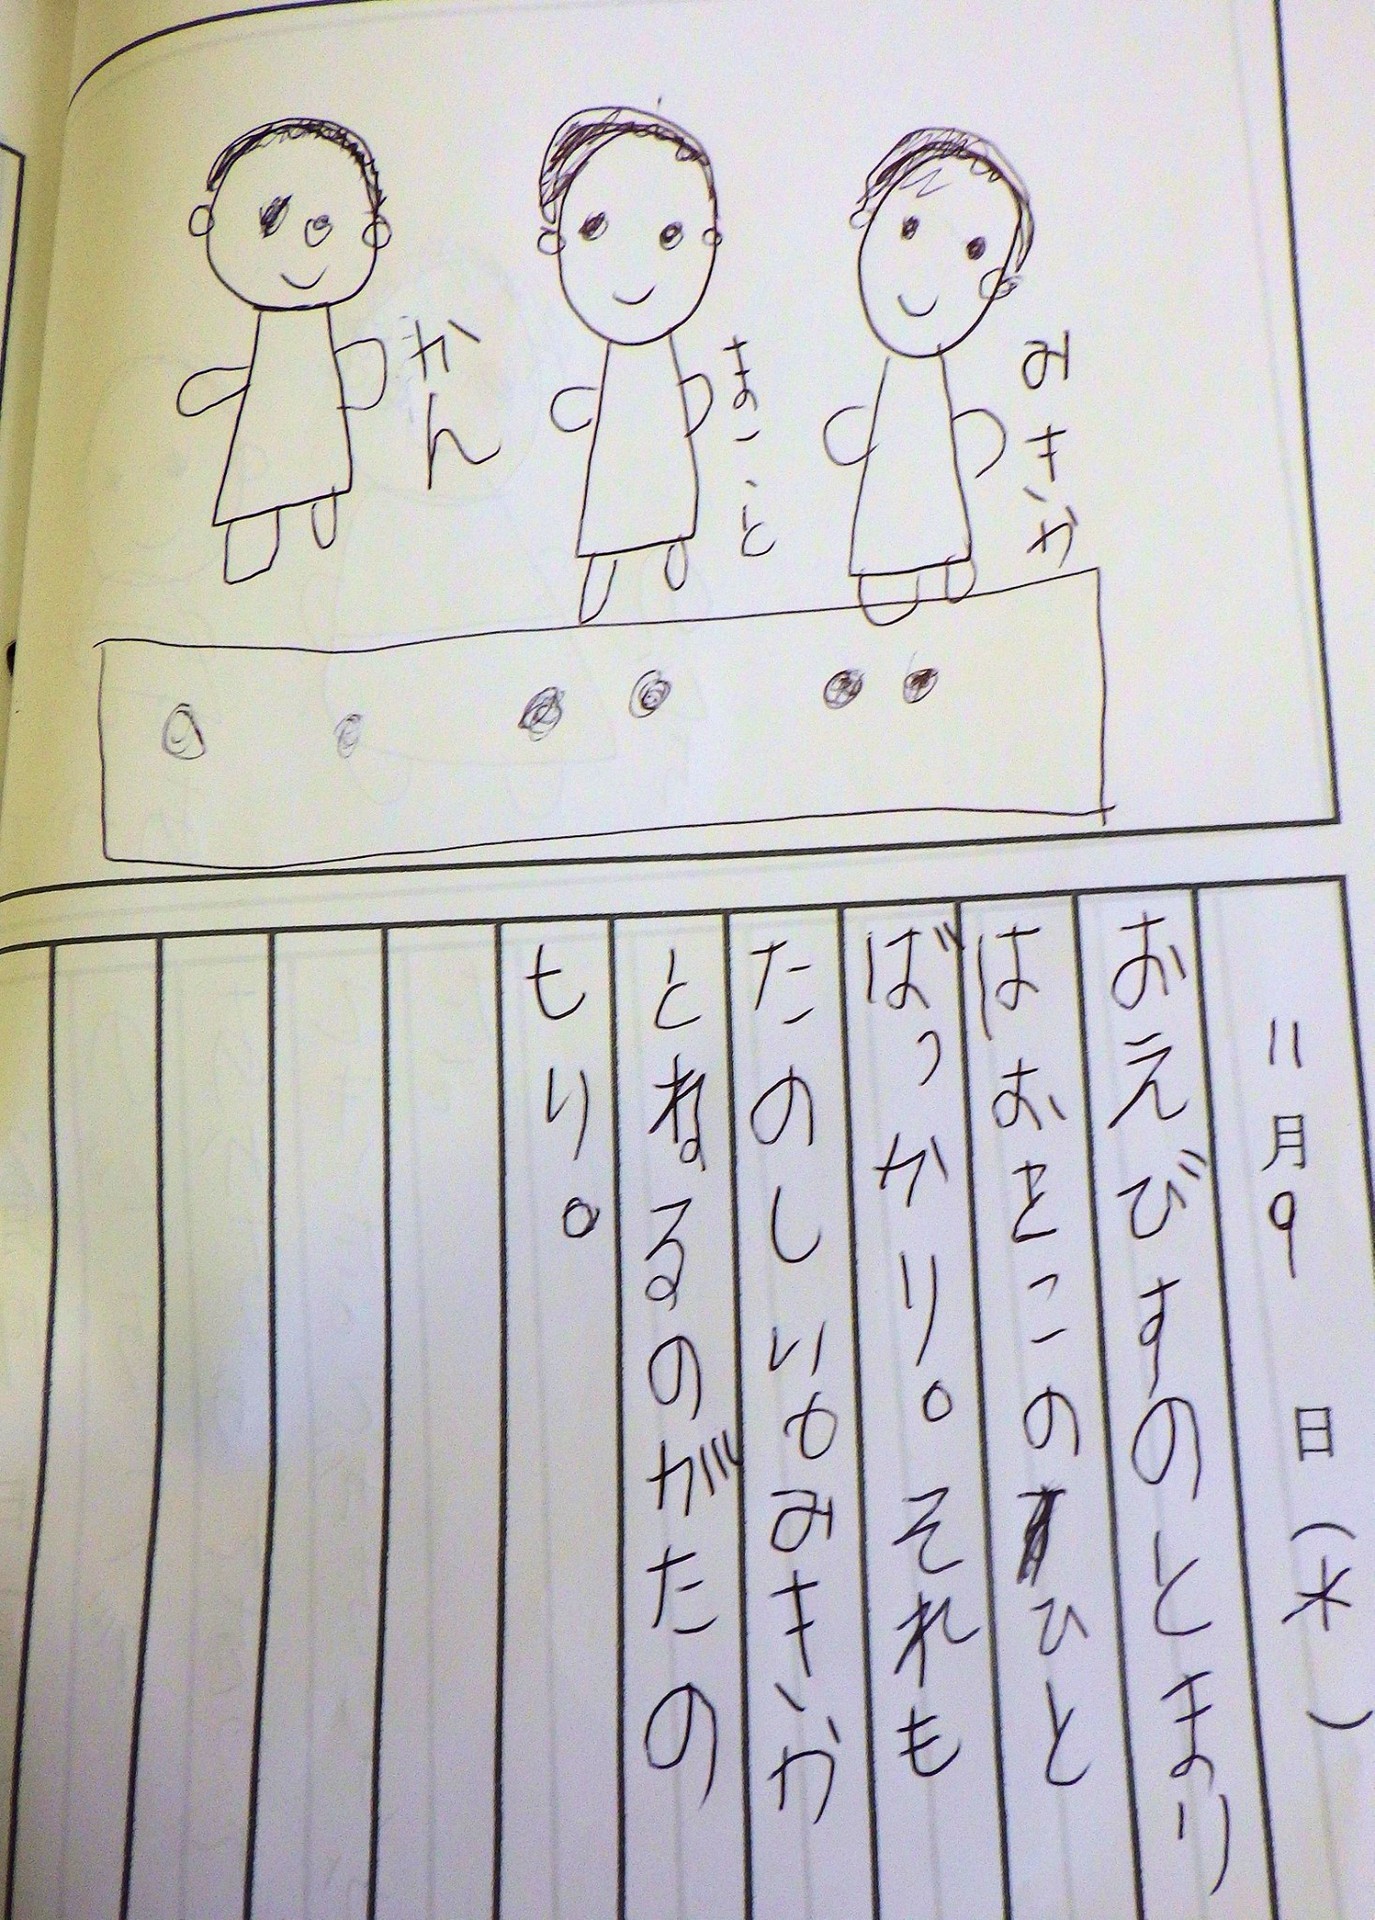 かん
まこと
みきか
11月9日(水)
おえびすのとまり
はおとこのひと
ばっかり。それも
たのしいもみきか
とねるのがたの
もり。